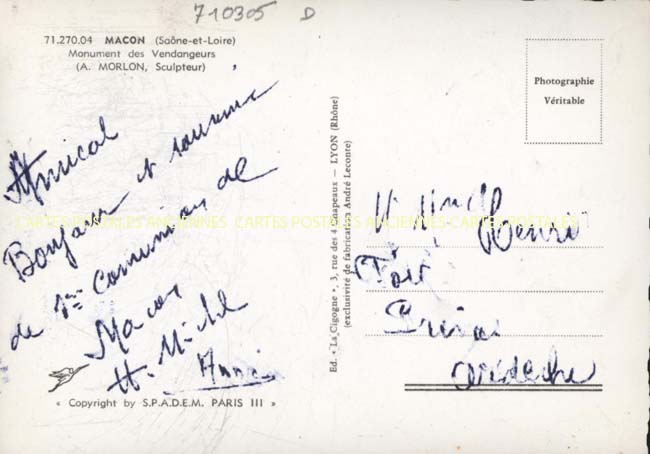 710305 D
71.270.04 MACON (Saône-et-Loire)
Monument des Vendangeurs
(A. MORLON, Sculpteur)
Amical
Bonjour et souvenir
de 1ère Comunion de
Macon
H. Michel
Anni
« Copyright by S.P.A.D.E.M. PARIS III »
Ed. « La Cigogne », 3, rue des 4 Chapeaux — LYON (Rhône)
(exclusivité de fabrication André Leconte)
Photographie
Véritable
Henri
Ardèche
CARTES POSTALES ANCIENNES CARTES POSTALES ANCIENNES CARTES POSTALES